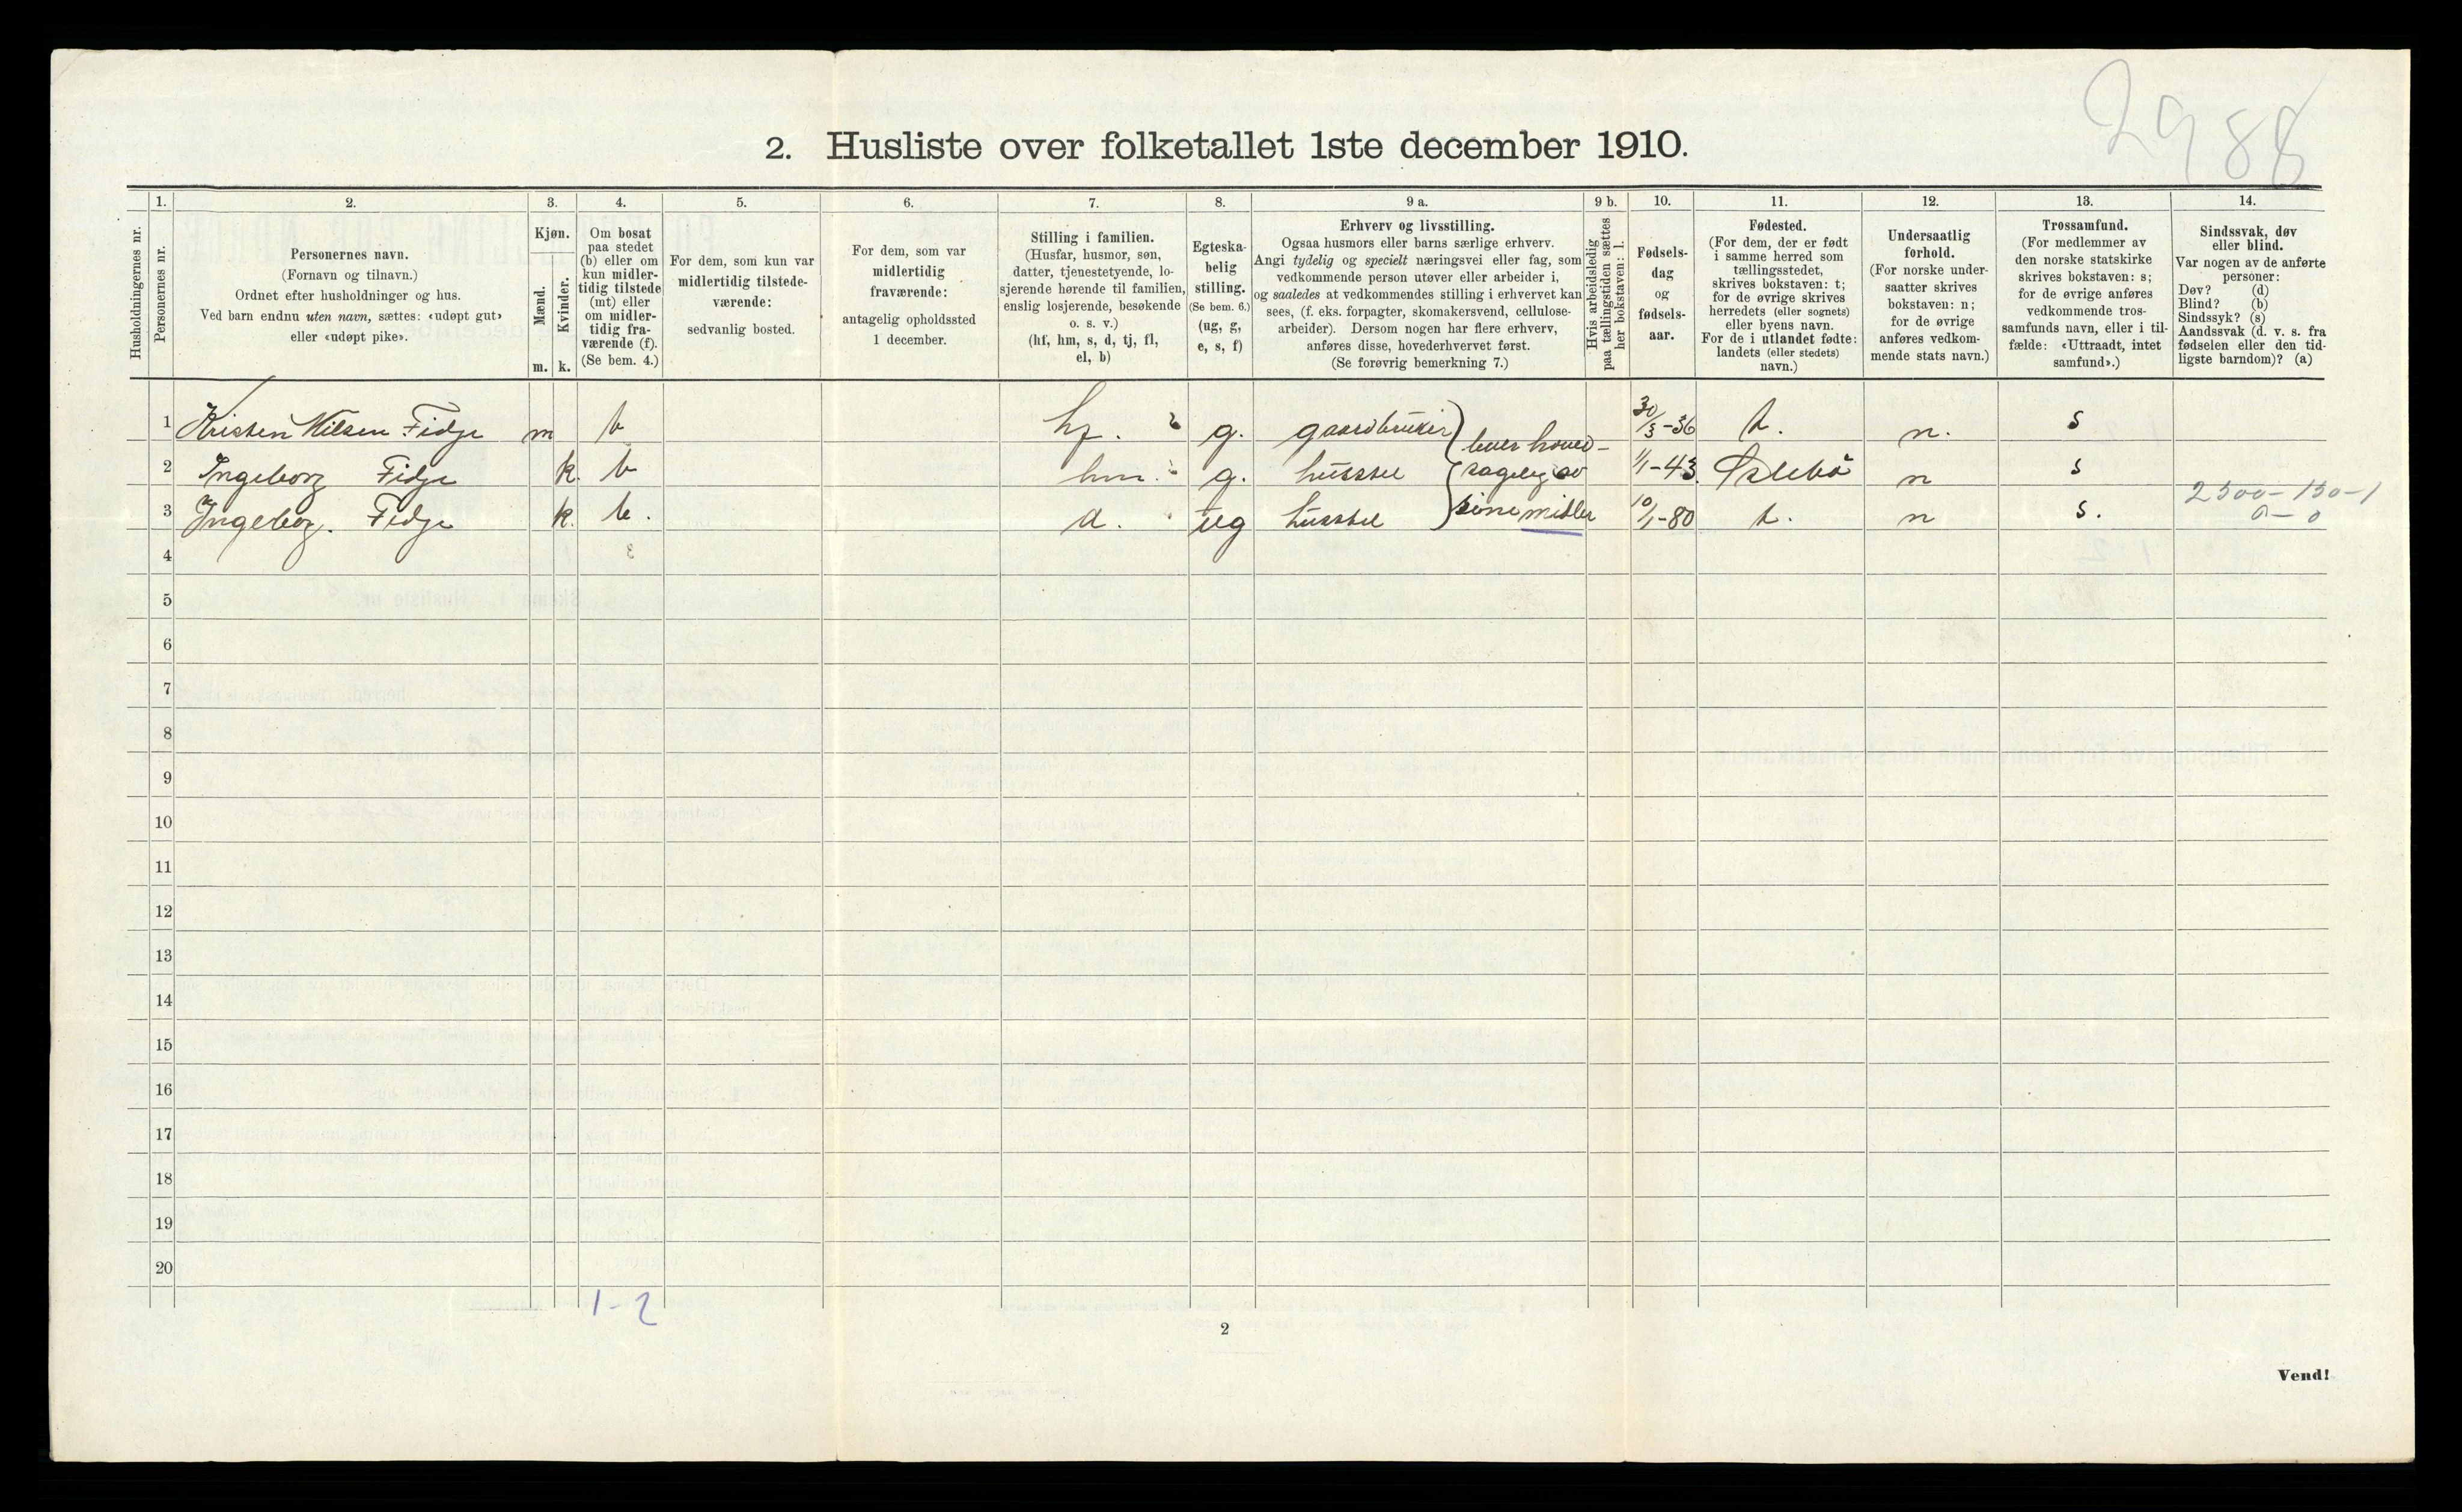 2988
2. Husliste over folketallet 1ste december 1910.
Husholdningernes nr.
1.
Personernes nr.
2.
Personernes navn.
(Fornavn og tilnavn.)
Ordnet efter husholdninger og hus.
Ved barn endnu uten navn, sættes: «udøpt gut»
eller «udøpt pike».
3.
Kjøn.
Mænd.
Kvinder.
m. k.
4.
Om bosat
paa stedet
(b) eller om
kun midler-
tidig tilstede
(mt) eller
om midler-
tidig fra-
værende (f).
(Se bem. 4.)
5.
For dem, som kun var
midlertidig tilstede-
værende:
sedvanlig bosted.
6.
For dem, som var
midlertidig
fraværende:
antagelig opholdssted
1 december.
7.
Stilling i familien.
(Husfar, husmor, søn,
datter, tjenestetyende, lo-
sjerende hørende til familien,
enslig losjerende, besøkende
o. s. v.)
(hf, hm, s, d, tj, fl,
el, b)
8.
Egteska-
belig
stilling.
(Se bem. 6.)
(ug, g,
e, s, f)
9 a.
Erhverv og livsstilling.
Ogsaa husmors eller barns særlige erhverv.
Angi tydelig og specielt næringsvei eller fag, som
vedkommende person utøver eller arbeider i,
og saaledes at vedkommendes stilling i erhvervet kan
sees, (f. eks. forpagter, skomakersvend, cellulose-
arbeider). Dersom nogen har flere erhverv,
anføres disse, hovederhvervet først.
(Se forøvrig bemerkning 7.)
9 b.
Hvis arbeidsledig
paa tællingstiden sættes
her bokstaven: l.
10.
Fødsels-
dag
og
fødsels-
aar.
11.
Fødested.
(For dem, der er født
i samme herred som
tællingsstedet,
skrives bokstaven: t;
for de øvrige skrives
herredets (eller sognets)
eller byens navn.
For de i utlandet fødte:
landets (eller stedets)
navn.)
12.
Undersaatlig
forhold.
(For norske under-
saatter skrives
bokstaven: n;
for de øvrige
anføres vedkom-
mende stats navn.)
13.
Trossamfund.
(For medlemmer av
den norske statskirke
skrives bokstaven: s;
for de øvrige anføres
vedkommende tros-
samfunds navn, eller i til-
fælde: «Uttraadt, intet
samfund».)
14.
Sindssvak, døv
eller blind.
Var nogen av de anførte
personer:
Døv? (d)
Blind? (b)
Sindssyk? (s)
Aandssvak (d. v. s. fra
fødselen eller den tid-
ligste barndom)? (a)
1 Kristen Nilsen Fidje m b hf. g. gaardbruker lever hoved- 30/3-36 t. n. s
2 Ingeborg Fidje k. b hm. g. husstel sagelig av 1/1-43 Øslebø n s
3 Ingeborg. Fidje k. b. d. ug husstel sine midler 10/1-80 t. n s. 2500-150-1
0-0
4 3
5
6
7
8
9
10
11
12
13
14
15
16
17
18
19
20
1-2
2
Vend!